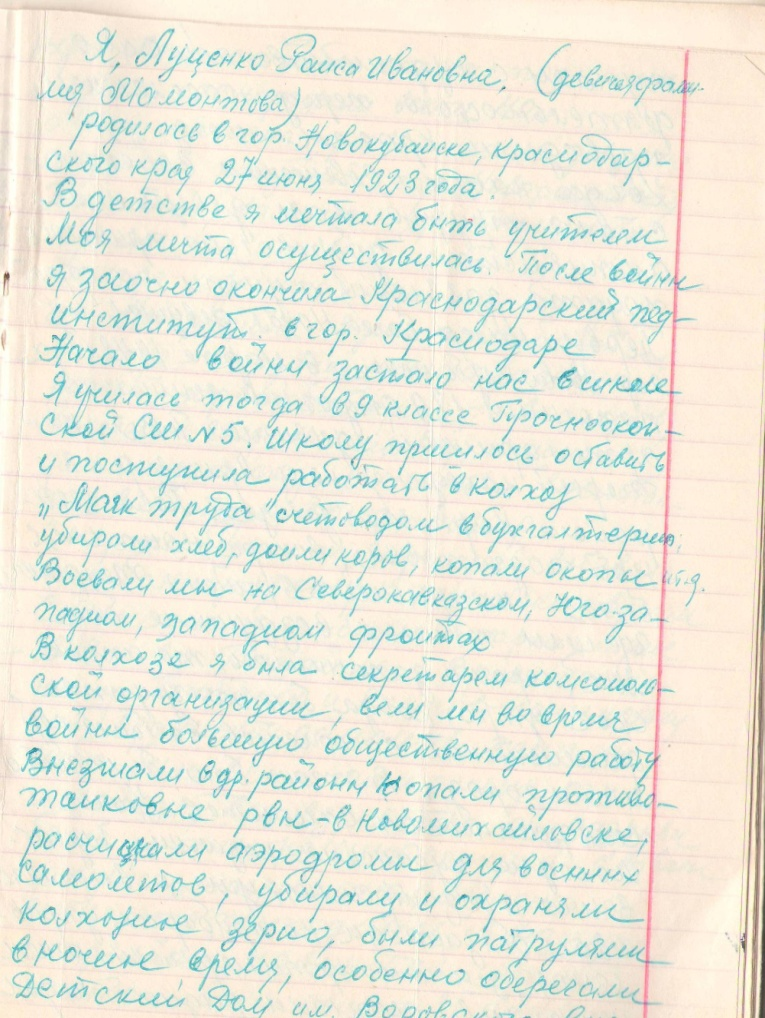 Я, Луценко Раиса Ивановна, (девичья фами-
лия Мамонтова)
родилась в гор. Новокубанске, Краснодар-
ского края 27 июня 1923 года.
В детстве я мечтала быть учителем
Моя мечта осуществилась. После войны
я заочно окончила Краснодарский пед-
институт в гор. Краснодаре
Начало войны застало нас в школе
Я училась тогда в 9 классе Прочноокоп-
ской СШ №5. Школу пришлось оставить
и поступила работать в колхоз
„Маяк труда" счетоводом в бухгалтерию,
убирали хлеб, доили коров, копали окопы и т.д.
Воевали мы на Северокавказском, Юго-за-
падном, западном фронтах
В колхозе я была секретарем комсомоль-
ской организации, вели мы во время
войны большую общественную работу
Выезжали в др. районы копали противо-
танковые рвы – в Новомихайловске,
расчищали аэродромы для военных
самолетов, убирали и охраняли
колхозное зерно, были патрулями
в ночное время, особенно оберегали
Детский Дом им. Воровского